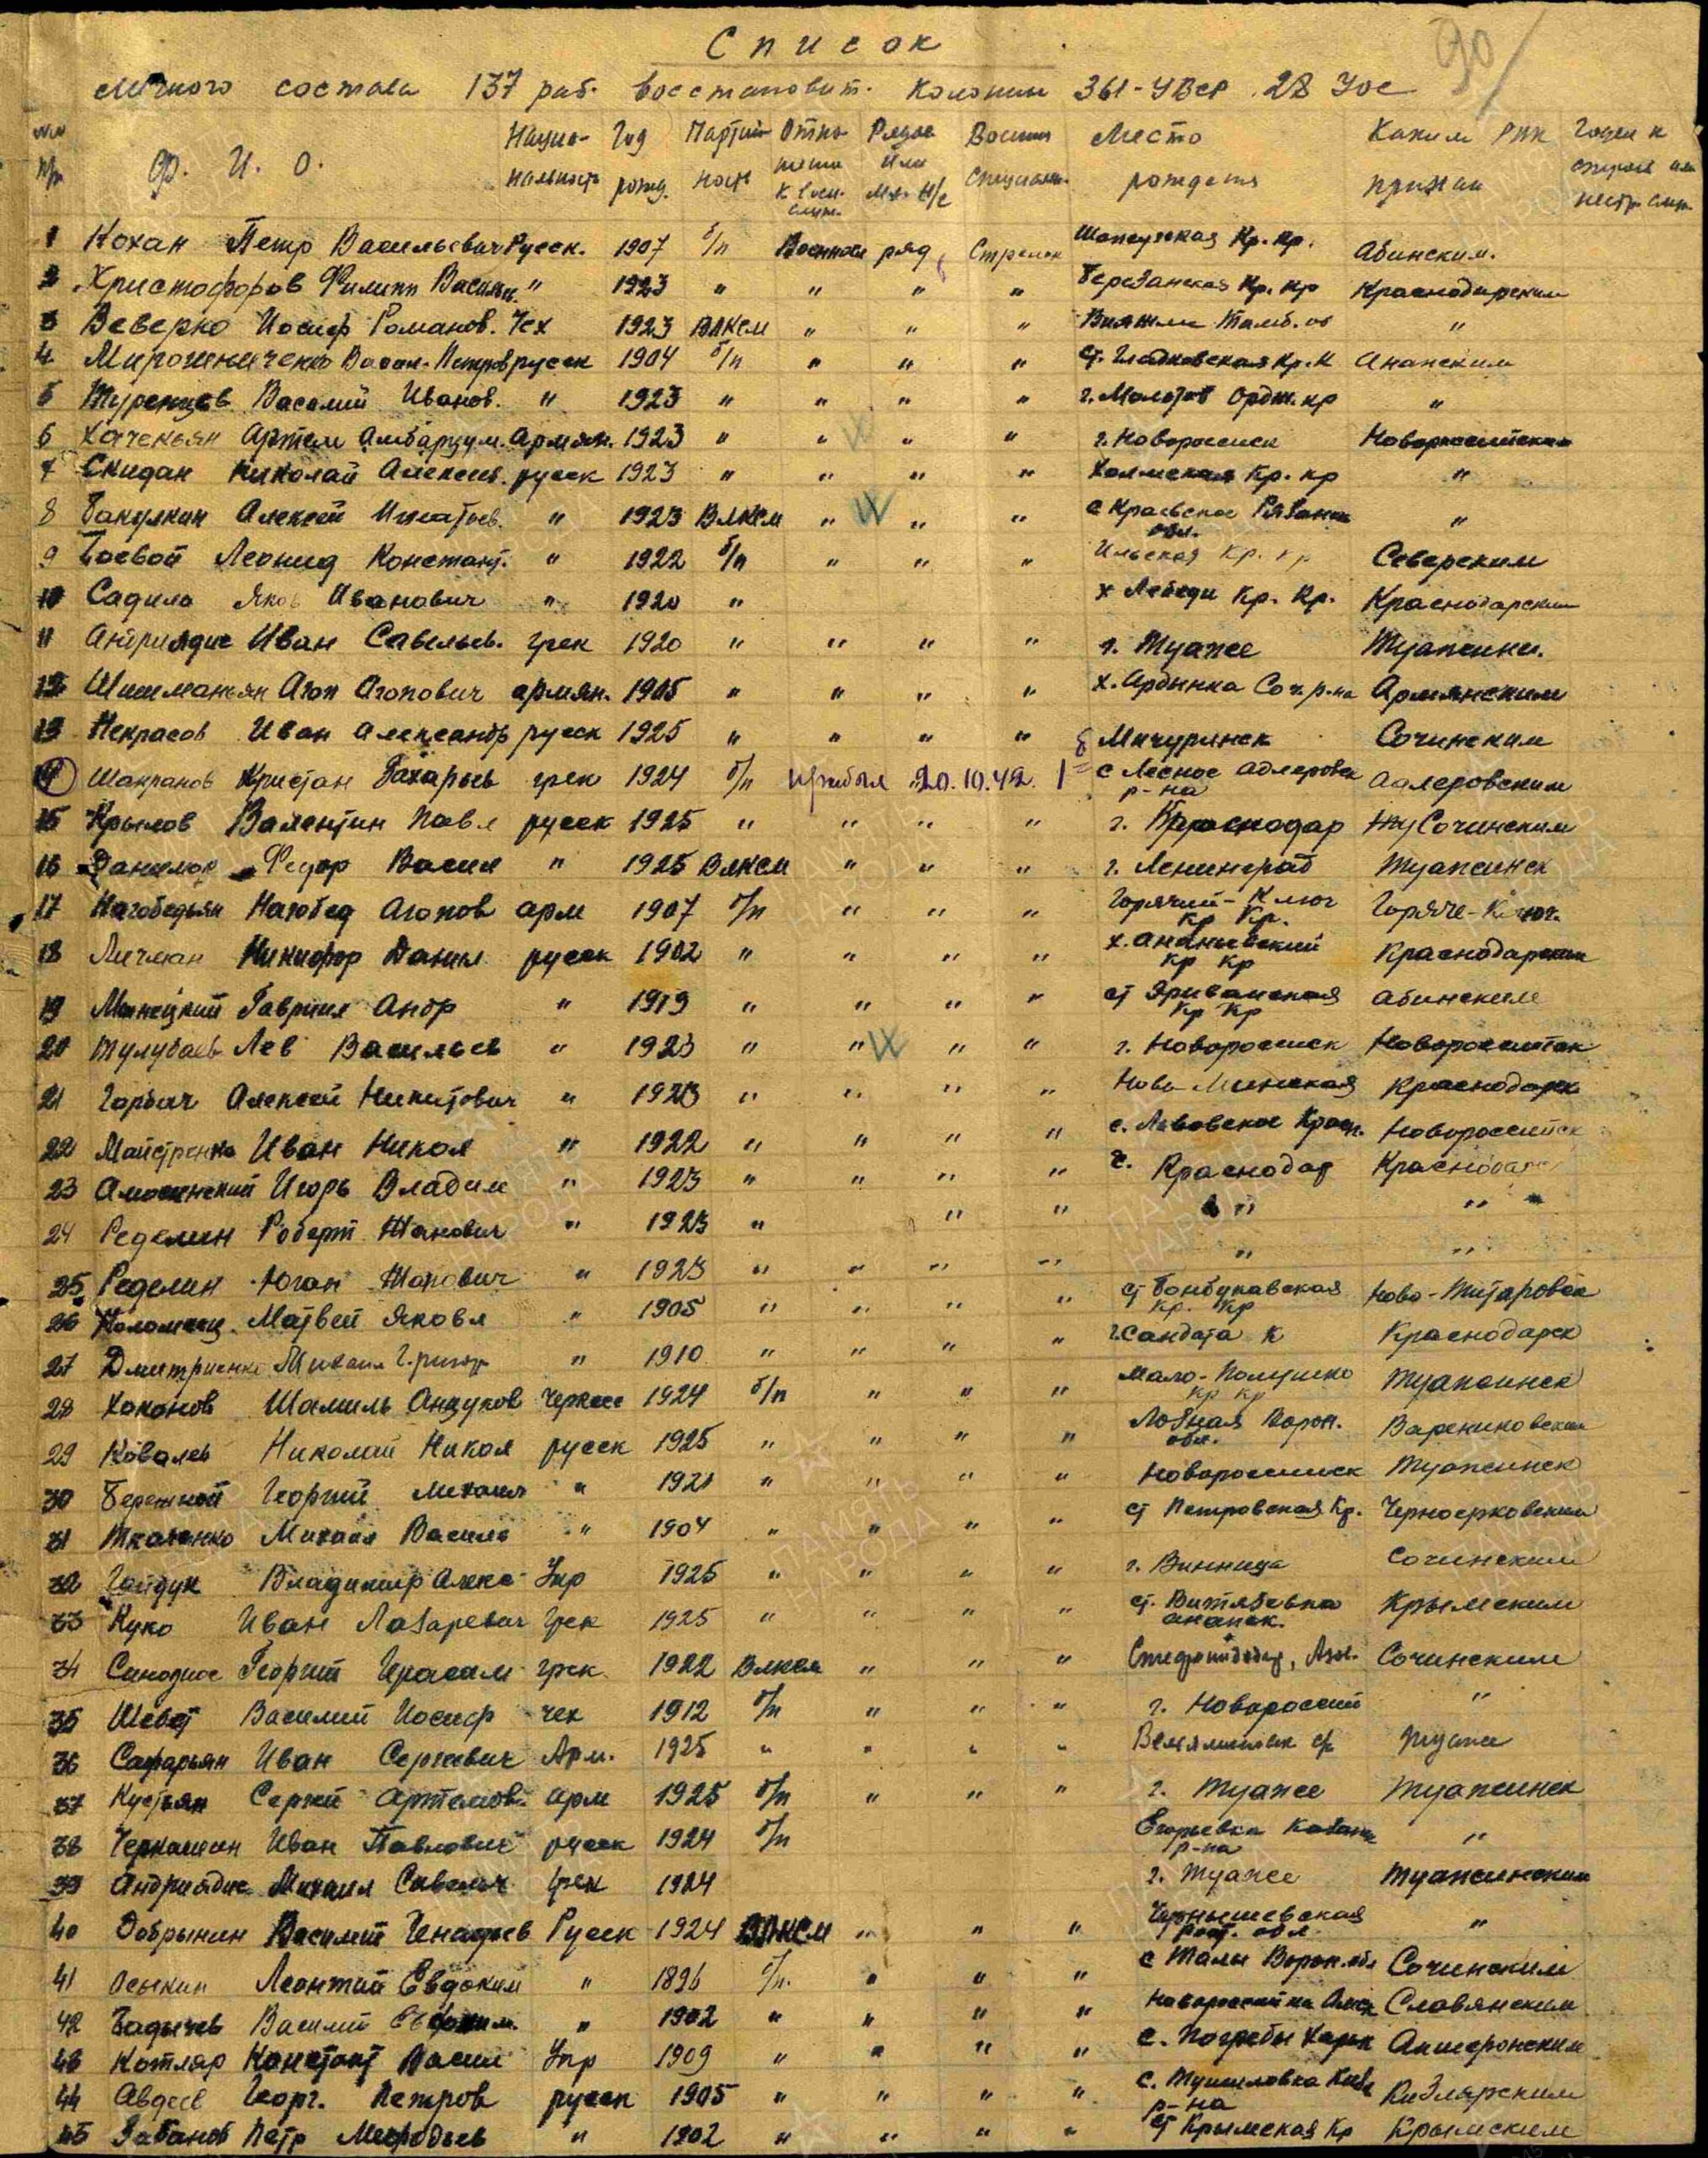 90
Список
личного состава 137 раб. восстановит. колонны 361-УВСР 28 УОС
№№ п/п Ф. И. О. Нацио-нальность Год рожд. Партийность Отно-шение к воен. служ. Рядов или мл. н/с Военная специальн. Место рождения Каким РВК призван Годен к строев или нестр. служ.
1 Кохан Петр Васильевич Русск. 1907 б/п Военнооб ряд. Стрелок Шапсугская Кр. кр. Абинским.
2 Христофоров Филипп Васильев. " 1923 " " " " Березанская Кр. кр Краснодарским
3 Веверко Иосиф Романов. Чех 1923 ВЛКСМ " " " Тамб. об "
4 Мирошниченко Васил. Петров русск 1904 б/п " " " ст. Гладковская Кр. К Анапским
5 Туренцев Василий Иванов. " 1923 " " " " г. Молотов Ордж. кр "
6 Хачекьян Артем Амбарцум. Армян. 1923 " " " " г. Новороссийск Новороссийским
7 Скидан Николай Алексеев. русск 1923 " " " " Холмская Кр. кр "
8 Бакулкин Алексей Игнатьев. " 1923 ВЛКСМ " " " с Рязанск обл. "
9 Боевой Леонид Констант. " 1922 б/п " " " Ильская Кр. кр Северским
10 Садило Яков Иванович " 1920 " х Лебеди Кр. Кр. Краснодарским
11 Андриядис Иван Савельев. грек 1920 " " " " г. Туапсе Туапсинск.
12 Шишманьян Агоп Агопович армян. 1905 " " " " х. Ардынка Соч. р-на Армянским
13 Некрасов Иван Александр русск 1925 " " " " г Мичуринск Сочинским
14 Шанранов Кристан Захарьев грек 1924 б/п прибыл 20.10.42. с Лесное Адлеровск р-на Адлеровским
15 Крылов Валентин Павл русск 1925 " " " " г. Краснодар Сочинским
16 Данилов Федор Васил " 1925 ВЛКСМ " " " г. Ленинград Туапсинск
17 Нагобедьян Нагобед Агопов арм 1907 б/п " " " Горячий-Ключ Кр Кр. Горяче-Ключ.
18 Личман Никифор Данил русск 1902 " " " " х. Ананьевский кр кр Краснодарским
19 Манецкий Гавриил Андр " 1919 " " " " ст Эриванская Кр Кр Абинским
20 Тулубаев Лев Васильев " 1923 " " " " г. Новороссийск Новороссийск
21 Горбач Алексей Никитович " 1923 " " " " Ново Минская Краснодарск
22 Майстренко Иван Никол " 1922 " " " " с. Львовское Красн. Новороссийск
23 Игорь Владим " 1923 " " " " г. Краснодар Краснодарс
24 Ределин Роберт Жанович " 1923 " " " " "
25 Ределин Юган Жанович " 1923 " " " " " "
26 Коломиец Матвей Яковл " 1905 " " " " ст Кр. Кр Ново-Титаровск
27 Дмитриенко Михаил Григор " 1910 " " " " Сандата К Краснодарск
28 Хаконов Шамиль Анцуков Черкесс 1924 б/п " " " Мало-Псеушко кр кр Туапсинск
29 Ковалев Николай Никол русск 1925 " " " " Лозная Ворон. обл. Варениковским
30 Бережной Георгий Михаил " 1921 " " " " Новороссийск Туапсинск
31 Ткаченко Михаил Василь " 1904 " " " " ст Петровская Кр. Черноерковским
32 Гайдук Владимир Алекс Укр 1925 " " " " г. Винница Сочинским
33 Куко Иван Лазаревич грек 1925 " " " " ст. Витязевка анапск. Крымским
34 Синодис Георгий Герасим грек 1922 ВЛКСМ " " " Сочинским
35 Шебет Василий Иосиф чех 1912 б/п " " " г. Новороссий "
36 Сафарьян Иван Сергеевич Арм. 1925 " " " " Туапсе
37 Кустьян Сергей Артемов. арм 1925 б/п " " " г. Туапсе Туапсинск
38 Черкашин Иван Павлович русск 1924 б/п Егорьевка р-на "
39 Андриядис Михаил Савельич грек 1924 г. Туапсе Туапсинским
40 Добрынин Василий Игнатьев Русск 1924 ВЛКСМ " " " Чернышевская рост. обл. "
41 Осыкин Леонтий Евдоким " 1896 б/п. " " " с Талы Ворон. обл Сочинским
42 Бадычев Василий Евдоким. " 1902 " " " " Славянским
43 Котляр Констант Васил Укр 1909 " " " " с. Погребы Апшеронским
44 Авдеев Георг. Петров русск 1905 " " " " с. р-на Кизлярским
45 Забанов Петр Мефодьев " 1902 " " " " ст Крымская Кр Крымским